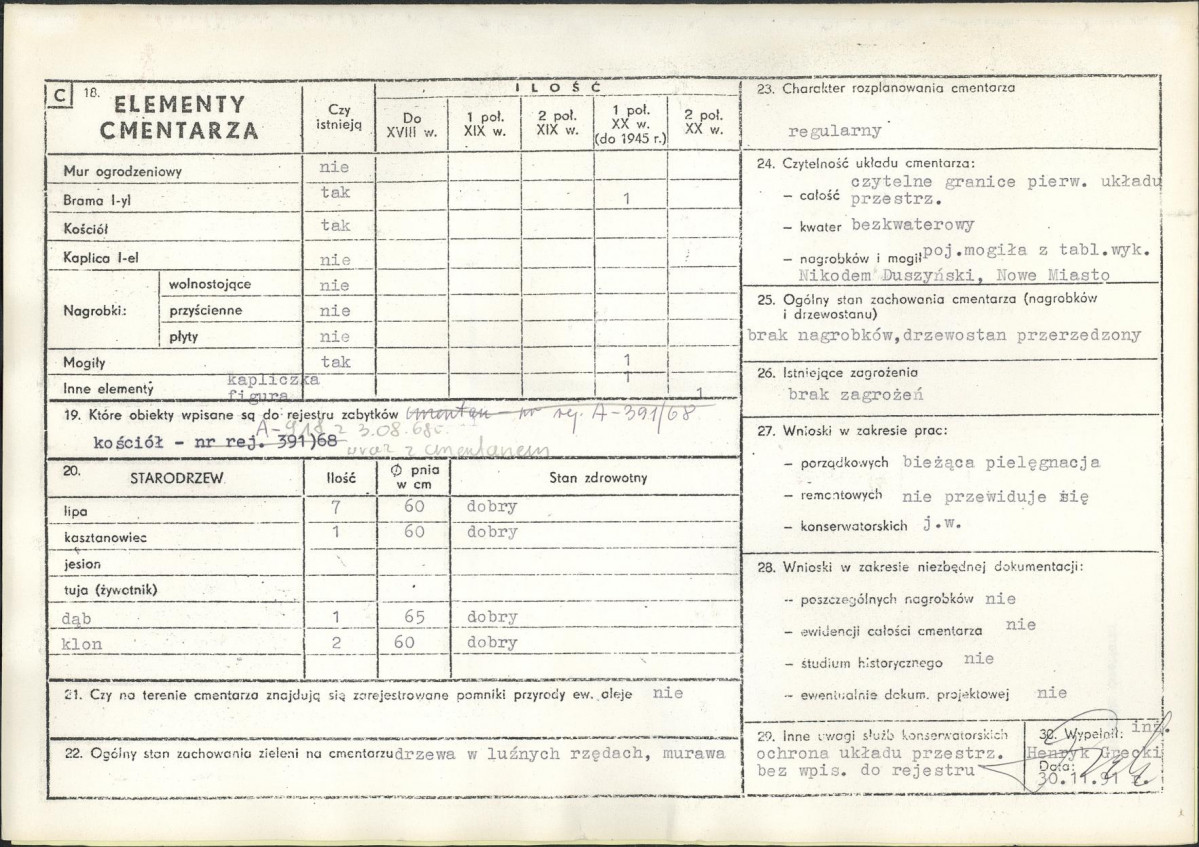 C 18. ELEMENTY CMENTARZA
Czy istnieją
ILOŚĆ
Do XVIII w.
1 poł. XIX w.
2 poł. XIX w.
1 poł. XX w. (do 1945 r.)
2 poł. XX w.
Mur ogrodzeniowy nie
Brama I-yl tak 1
Kościół tak
Kaplica I-el nie
Nagrobki:
wolnostojące nie
przyścienne nie
płyty nie
Mogiły tak 1
Inne elementy kapliczka 1
figura 1
19. Które obiekty wpisane są do rejestru zabytków cmentarz - nr rej. A-391/68
A-918 z 3.08.68r.
kościół - nr rej. 391)68
wraz z cmentarzem
20. STARODRZEW Ilość Ø pnia w cm Stan zdrowotny
lipa 7 60 dobry
kasztanowiec 1 60 dobry
jesion
tuja (żywotnik)
dąb 1 65 dobry
klon 2 60 dobry
21. Czy na terenie cmentarza znajdują się zarejestrowane pomniki przyrody ew. aleje nie
22. Ogólny stan zachowania zieleni na cmentarzu drzewa w luźnych rzędach, murawa
23. Charakter rozplanowania cmentarza
regularny
24. Czytelność układu cmentarza:
— całość czytelne granice pierw. układu
przestrz.
— kwater bezkwaterowy
— nagrobków i mogił poj.mogiła z tabl.wyk.
Nikodem Duszyński, Nowe Miasto
25. Ogólny stan zachowania cmentarza (nagrobków
i drzewostanu)
brak nagrobków,drzewostan przerzedzony
26. Istniejące zagrożenia
brak zagrożeń
27. Wnioski w zakresie prac:
— porządkowych bieżąca pielęgnacja
— remontowych nie przewiduje się
— konserwatorskich j.w.
28. Wnioski w zakresie niezbędnej dokumentacji:
— poszczególnych nagrobków nie
— ewidencji całości cmentarza nie
— studium historycznego nie
— ewentualnie dokum. projektowej nie
29. Inne uwagi służb konserwatorskich
ochrona układu przestrz.
bez wpis. do rejestru
30. Wypełnił: inż.
Henryk Grecki
Data:
30.11.91 r.